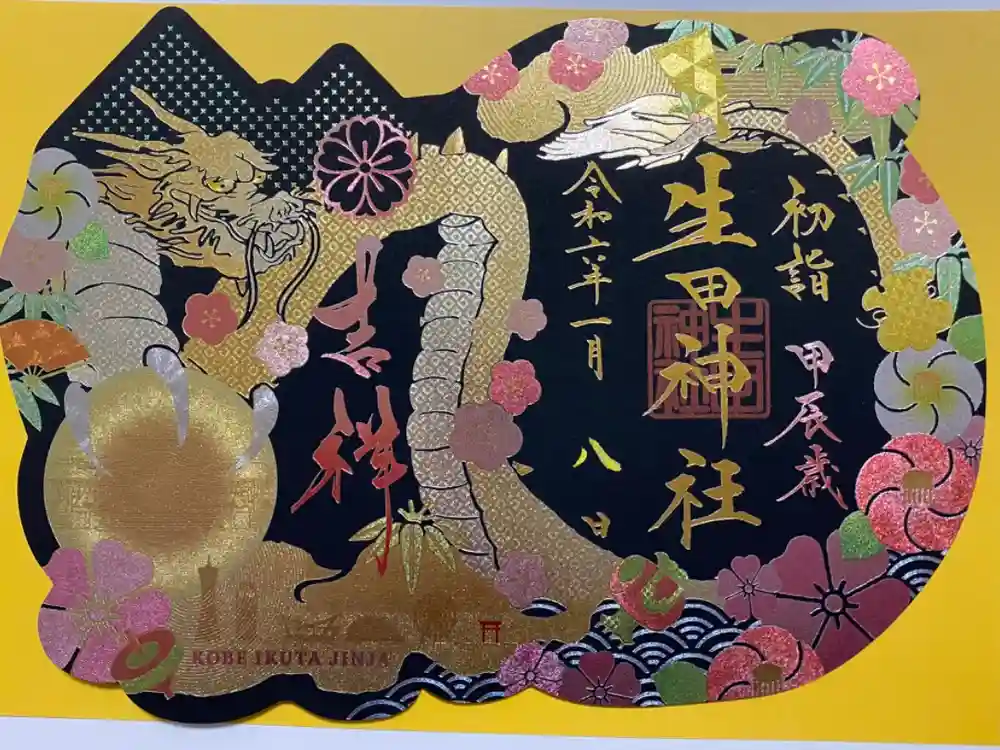 初詣 甲辰歳
生田神社
令和六年一月八日
吉祥
KOBE IKUTA JINJA